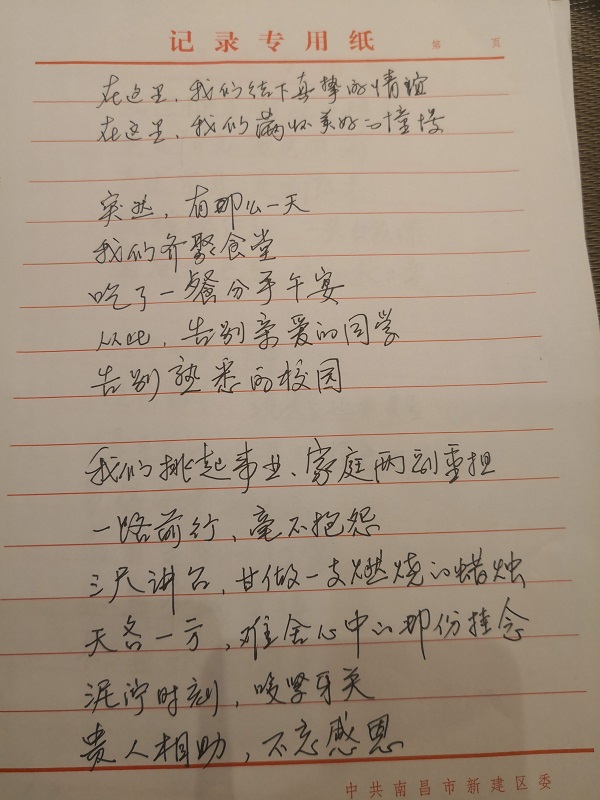 记录专用纸 第 页
在这里，我们结下真挚的情谊
在这里，我们满怀美好的憧憬
突然，有那么一天
我们齐聚食堂
吃了一餐分手午宴
从此，告别亲爱的同学
告别熟悉的校园
我们挑起事业、家庭两副重担
一路前行，毫不抱怨
三尺讲台，甘做一支燃烧的蜡烛
天各一方，难舍心中的那份挂念
泥泞时刻，咬紧牙关
贵人相助，不忘感恩
中共南昌市新建区委